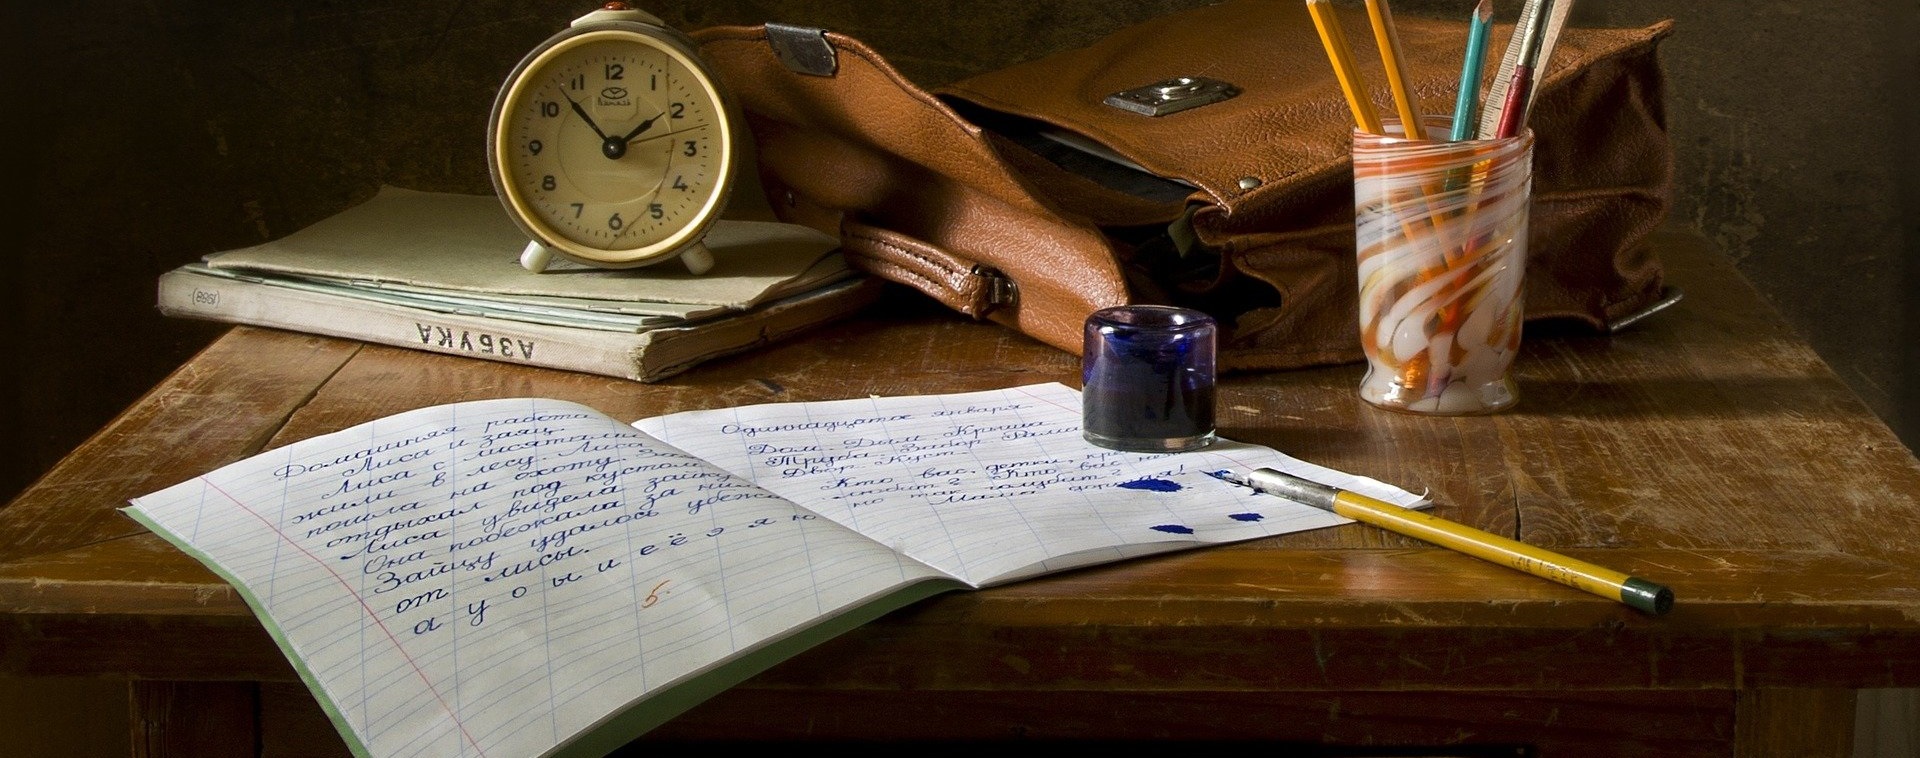 12
11
1
10
2
9
3
8
4
7
5
6
(1988)
АЗБУКА
Домашняя работа
Лиса и заяц.
Лиса с лисятами
жили в лесу. Лиса
пошла на охоту. За
отдыхал под кустом.
Лиса увидела зайц
Она побежала за ни
Зайцу удалось убежа
от лисы.
а у о ы и е ё э я ю
5.
Одиннадцатое января
Дом. Дым. Крыша
Труба. Забор. Рама
Двор. Куст.
Кто вас, детки, кре
любит? Кто вас не
но так голубит?
Мама дорогая!